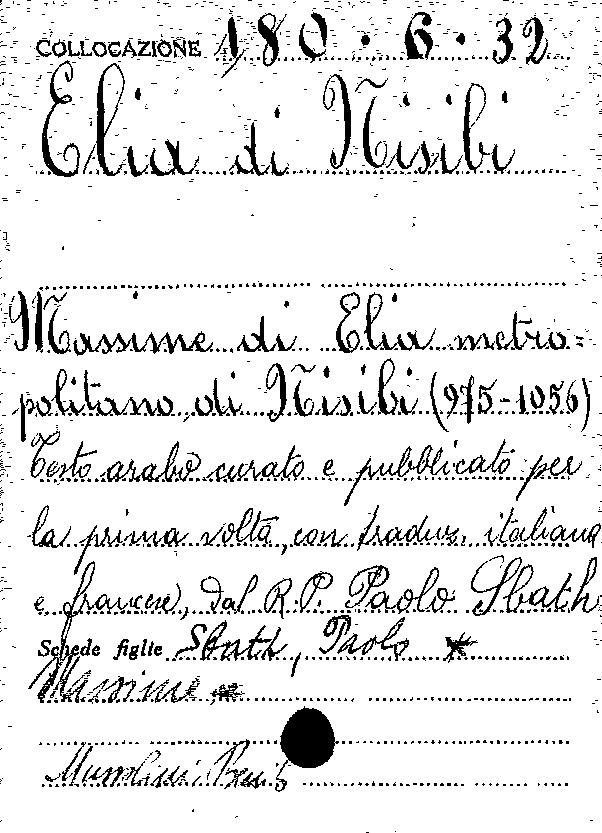 COLLOCAZIONE 180.6.32
Elia di Nisibi
Massime di Elia metro=
politano di Nisibi (975-1056)
Testo arabo curato e pubblicato per
la prima volta, con traduz. italiana
e francese, dal R. P. Paolo Sbath
Schede figlie Sbath, Paolo
Massime